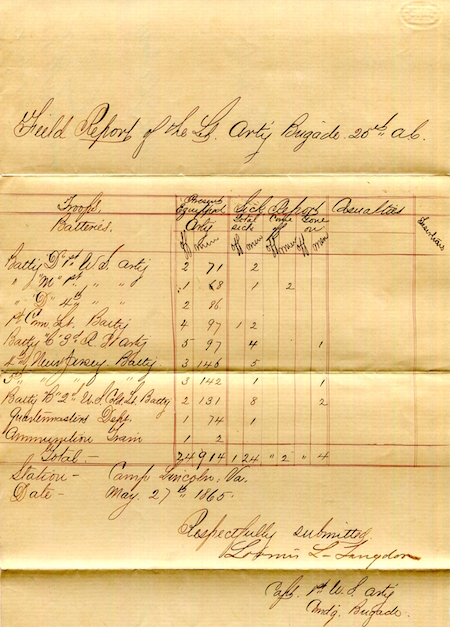 Field Report of the Lt. Arty Brigade 25th a.c.
Troops Present Equipped Sick Report Casualties
Batteries. Arty Total sick Gone on
off men off men off men off men
Batty "D" 1st U.S. Arty 2 71 2
" "M" 1st " " 1 68 1 2
" "D" 4th " " 2 86
1st Con. Lt. Batty 4 97 1 2
Batty "C" 3d R.I. Arty 5 97 4 1
4th New Jersey Batty 3 146 5
5th " " " 3 142 1 1
Batty "B" 2d U.S. Cold Lt. Batty 2 131 8 2
Quartermasters Dept. 1 74 1
Ammunition Train 1 2
Total — 24 914 1 24 " 2 " 4
Station — Camp Lincoln, Va.
Date — May 27th 1865.
Respectfully submitted
Loomis L. Langdon
Capt. 1st U.S. Arty
Cmdg. Brigade.